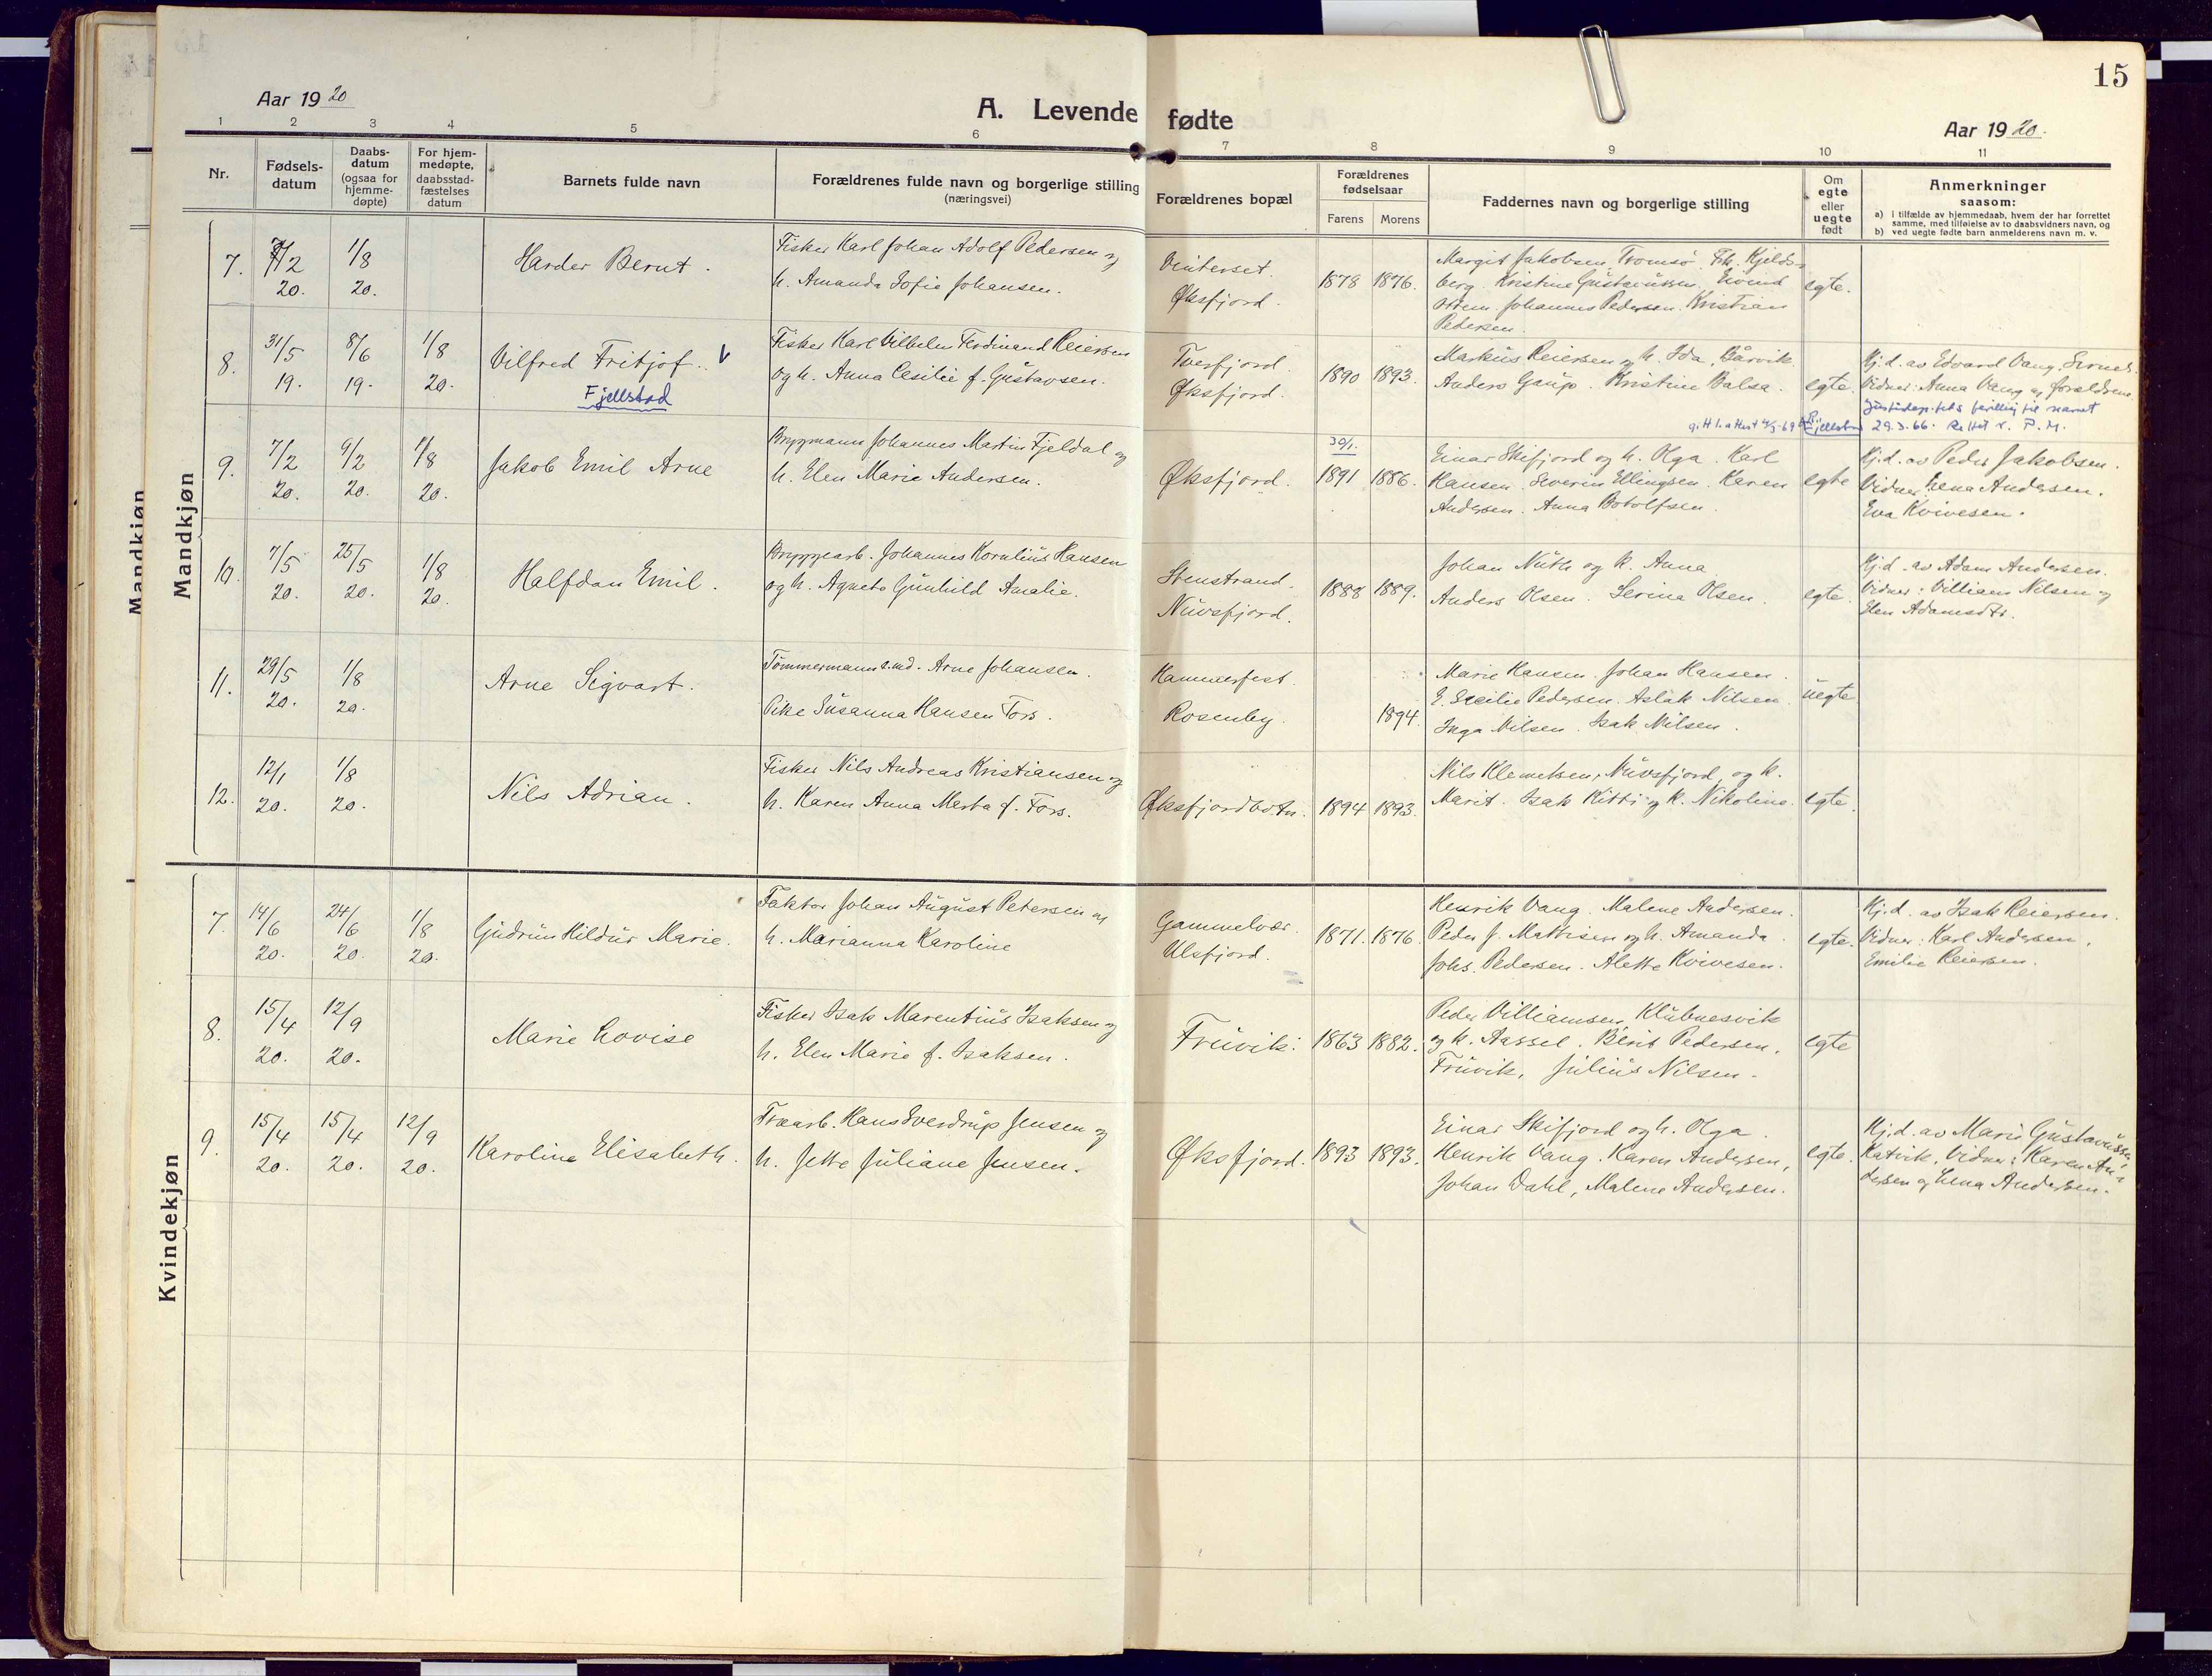 15
Aar 1920
A. Levende fødte
Aar 1920.
1 2 3 4 5 6 7 8 9 10 11
Nr.
Fødsels-
datum
Daabs-
datum
(ogsaa for
hjemme-
døpte)
For hjem-
medøpte,
daabsstad-
fæstelses
datum
Barnets fulde navn
Forældrenes fulde navn og borgerlige stilling
(næringsvei)
Forældrenes bopæl
Forældrenes
fødselsaar
Farens Morens
Faddernes navn og borgerlige stilling
Om
egte
eller
uegte
født
Anmerkninger
saasom:
a) i tilfælde av hjemmedaab, hvem der har forrettet
samme, med tilføielse av to daabsvidners navn, og
b) ved uegte fødte barn anmelderens navn m. v.
Mandkjøn
Mandkjøn
7.
20.
1/8
20.
Harder Bernt.
Fisker Karl Johan Adolf Pedersen og
h. Amanda Sofie Johansen.
Vinterset.
Øksfjord.
1878 1876.
Margit Jakobsen, Tromsø. Frk. Kjelds-
berg. Kristine Gustavussen. Eivind
Johannes Pedersen. Kristian
Pedersen.
egte.
8.
31/5
19.
8/6
19.
1/8
20.
Vilfred Fritjof. V
Fjellstad
Fisker Karl Vilhelm Ferdinand Reiersen
og h. Anna Cesilie f. Gustavsen.
Tverfjord.
Øksfjord.
1890 1893.
Markus Reiersen og h. Ida, Bårvik.
Anders Gaup. Kristine Balsa.
egte.
Hj. d. av Edvard Vang,
Vidner: Anna Vang og forældrene.
til navnet
Fjellstad 29.3.66. Rettet P. M.
9.
7/2
20.
9/2
20.
1/8
20.
Jakob Emil Arne
Bryggmann Johannes Martin Fjeldal og
h. Elen Marie Andersen.
Øksfjord.
30/1.
1891 1886.
Einar Skifjord og h. Olga. Karl
Hansen. Severin Ellingsen. Karen
Andersen. Anna Botolfsen.
egte
Hj. d. av Peder Jakobsen.
Vidner: Lena Andersen.
Eva Kvivesen.
10.
7/5
20.
25/5
20.
1/8
20.
Halfdan Emil.
Bryggearb. Johannes Kornelius Hansen
og h. Agnete Gunhild Amalie.
Stenstrand.
Nuvsfjord.
1888 1889.
Johan Nuth og k. Anna
Anders Olsen. Serina Olsen.
egte.
Hj. d. av Adam Andersen.
Vidner: Villiam Nilsen og
Elen Adamsdtr.
11.
29/5
20.
1/8
20.
Arne Sigvart.
Tømmermann Arne Johansen.
Pike Susanna Hansen Fors.
Hammerfest.
Rosenby.
1894.
Marie Hansen. Johan Hansen.
E. Secilie Pedersen. Aslak Nilsen.
Inga Nilsen. Isak Nilsen.
uegte
12.
12/1
20.
1/8
20.
Nils Adrian.
Fisker Nils Andreas Kristiansen og
h. Karen Anna Merta f. Fors.
Øksfjordbotn.
1894 1893.
Nils Klemetsen, Nuvsfjord, og k.
Marit. Isak Kitti og k. Nikoline.
egte.
Kvindekjøn
7.
14/6
20.
24/6
20.
1/8
20.
Gudrun Hildur Marie.
Faktor Johan August Petersen og
h. Marianna Karoline
Gammelvær.
Ulsfjord.
1871. 1876.
Henrik Vang. Malene Andersen.
Peder J. Mathisen og h. Amanda.
Johs. Pedersen. Alette Kvivesen.
egte.
Hj. d. av Isak Reiersen.
Vidner: Karl Andersen,
Emilie Reiersen.
8.
15/4
20.
12/9
20.
Marie Lovise
Fisker Isak Marentius Isaksen og
h. Elen Marie f. Isaksen.
Fruvik.
1863 1882.
Peder Villiamsen, Klubnesvik
og k. Aassel. Berit Pedersen,
Fruvik, Julius Nilsen.
egte
9.
15/4
20.
15/4
20.
12/9
20.
Karoline Elisabeth.
Træarb. Hans Sverdrup Jensen og
h. Jette Juliane Jensen.
Øksfjord.
1893 1893.
Einar Skifjord og h. Olga.
Henrik Vang. Karen Andersen,
Johan Dahl, Malene Andersen.
egte.
Hj. d. av Marie Gustavussen
Katvik. Vidner: Karen An-
dersen og Lena Andersen.